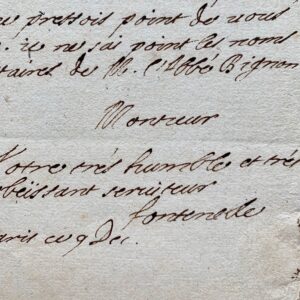 e pressois point de vous
. ie ne sai point les noms
taires de M. l'Abbé Bignon
Monsieur
Votre trés humble et trés
obëissant seruiteur
fontenelle
aris ce 9 Dec.